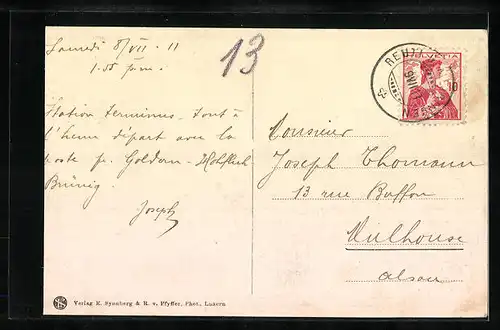 Samedi 8/VII 11
1.55 p.m.
13
Station terminus. Tout à
l'heure départ avec la
poste p. Goldern - Hohfluh
Brünig.
Joseph
HELVETIA
10
Monsieur
Joseph Thomann
13 rue Buffon
Mulhouse
Alsace
Verlag E. Synnberg & R. v. Pfyffer, Phot., Luzern